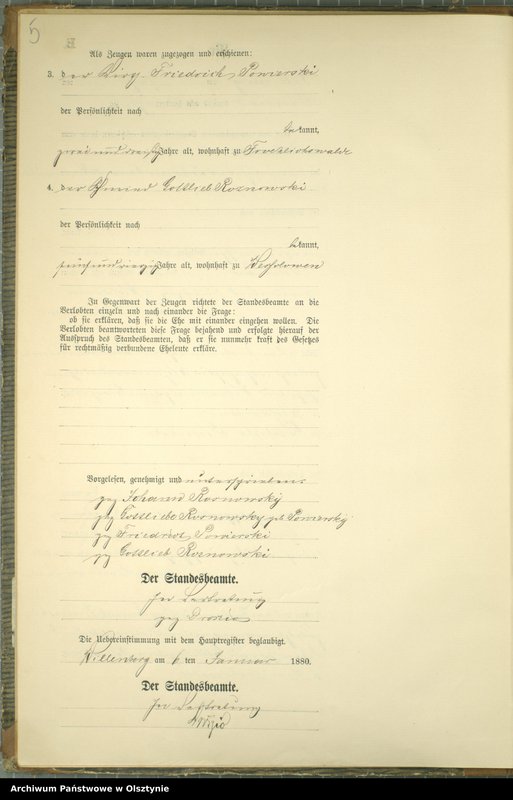 5
Als Zeugen waren zugezogen und erschienen:
3. der Wirth Friedrich Powierski
der Persönlichkeit nach
bekannt,
zwei und dreißig Jahre alt, wohnhaft zu
4. der Gottlieb Roznowski
der Persönlichkeit nach
bekannt,
Jahre alt, wohnhaft zu Wessolowen
In Gegenwart der Zeugen richtete der Standesbeamte an die
Verlobten einzeln und nach einander die Frage:
ob sie erklären, daß sie die Ehe mit einander eingehen wollen. Die
Verlobten beantworteten diese Frage bejahend und erfolgte hierauf der
Ausspruch des Standesbeamten, daß er sie nunmehr kraft des Gesetzes
für rechtmäßig verbundene Eheleute erkläre.
Vorgelesen, genehmigt und unterschrieben
gez Johann Rosnowsky
gez Gottlieba Rosnowsky geb Powiersky
gez Friedrich Powierski
gez Gottlieb Roznowski
Der Standesbeamte.
In Vertretung
gez
Die Uebereinstimmung mit dem Hauptregister beglaubigt.
Willenberg am 6 ten Januar 1880.
Der Standesbeamte.
In Vertretung
Archiwum Państwowe w Olsztynie